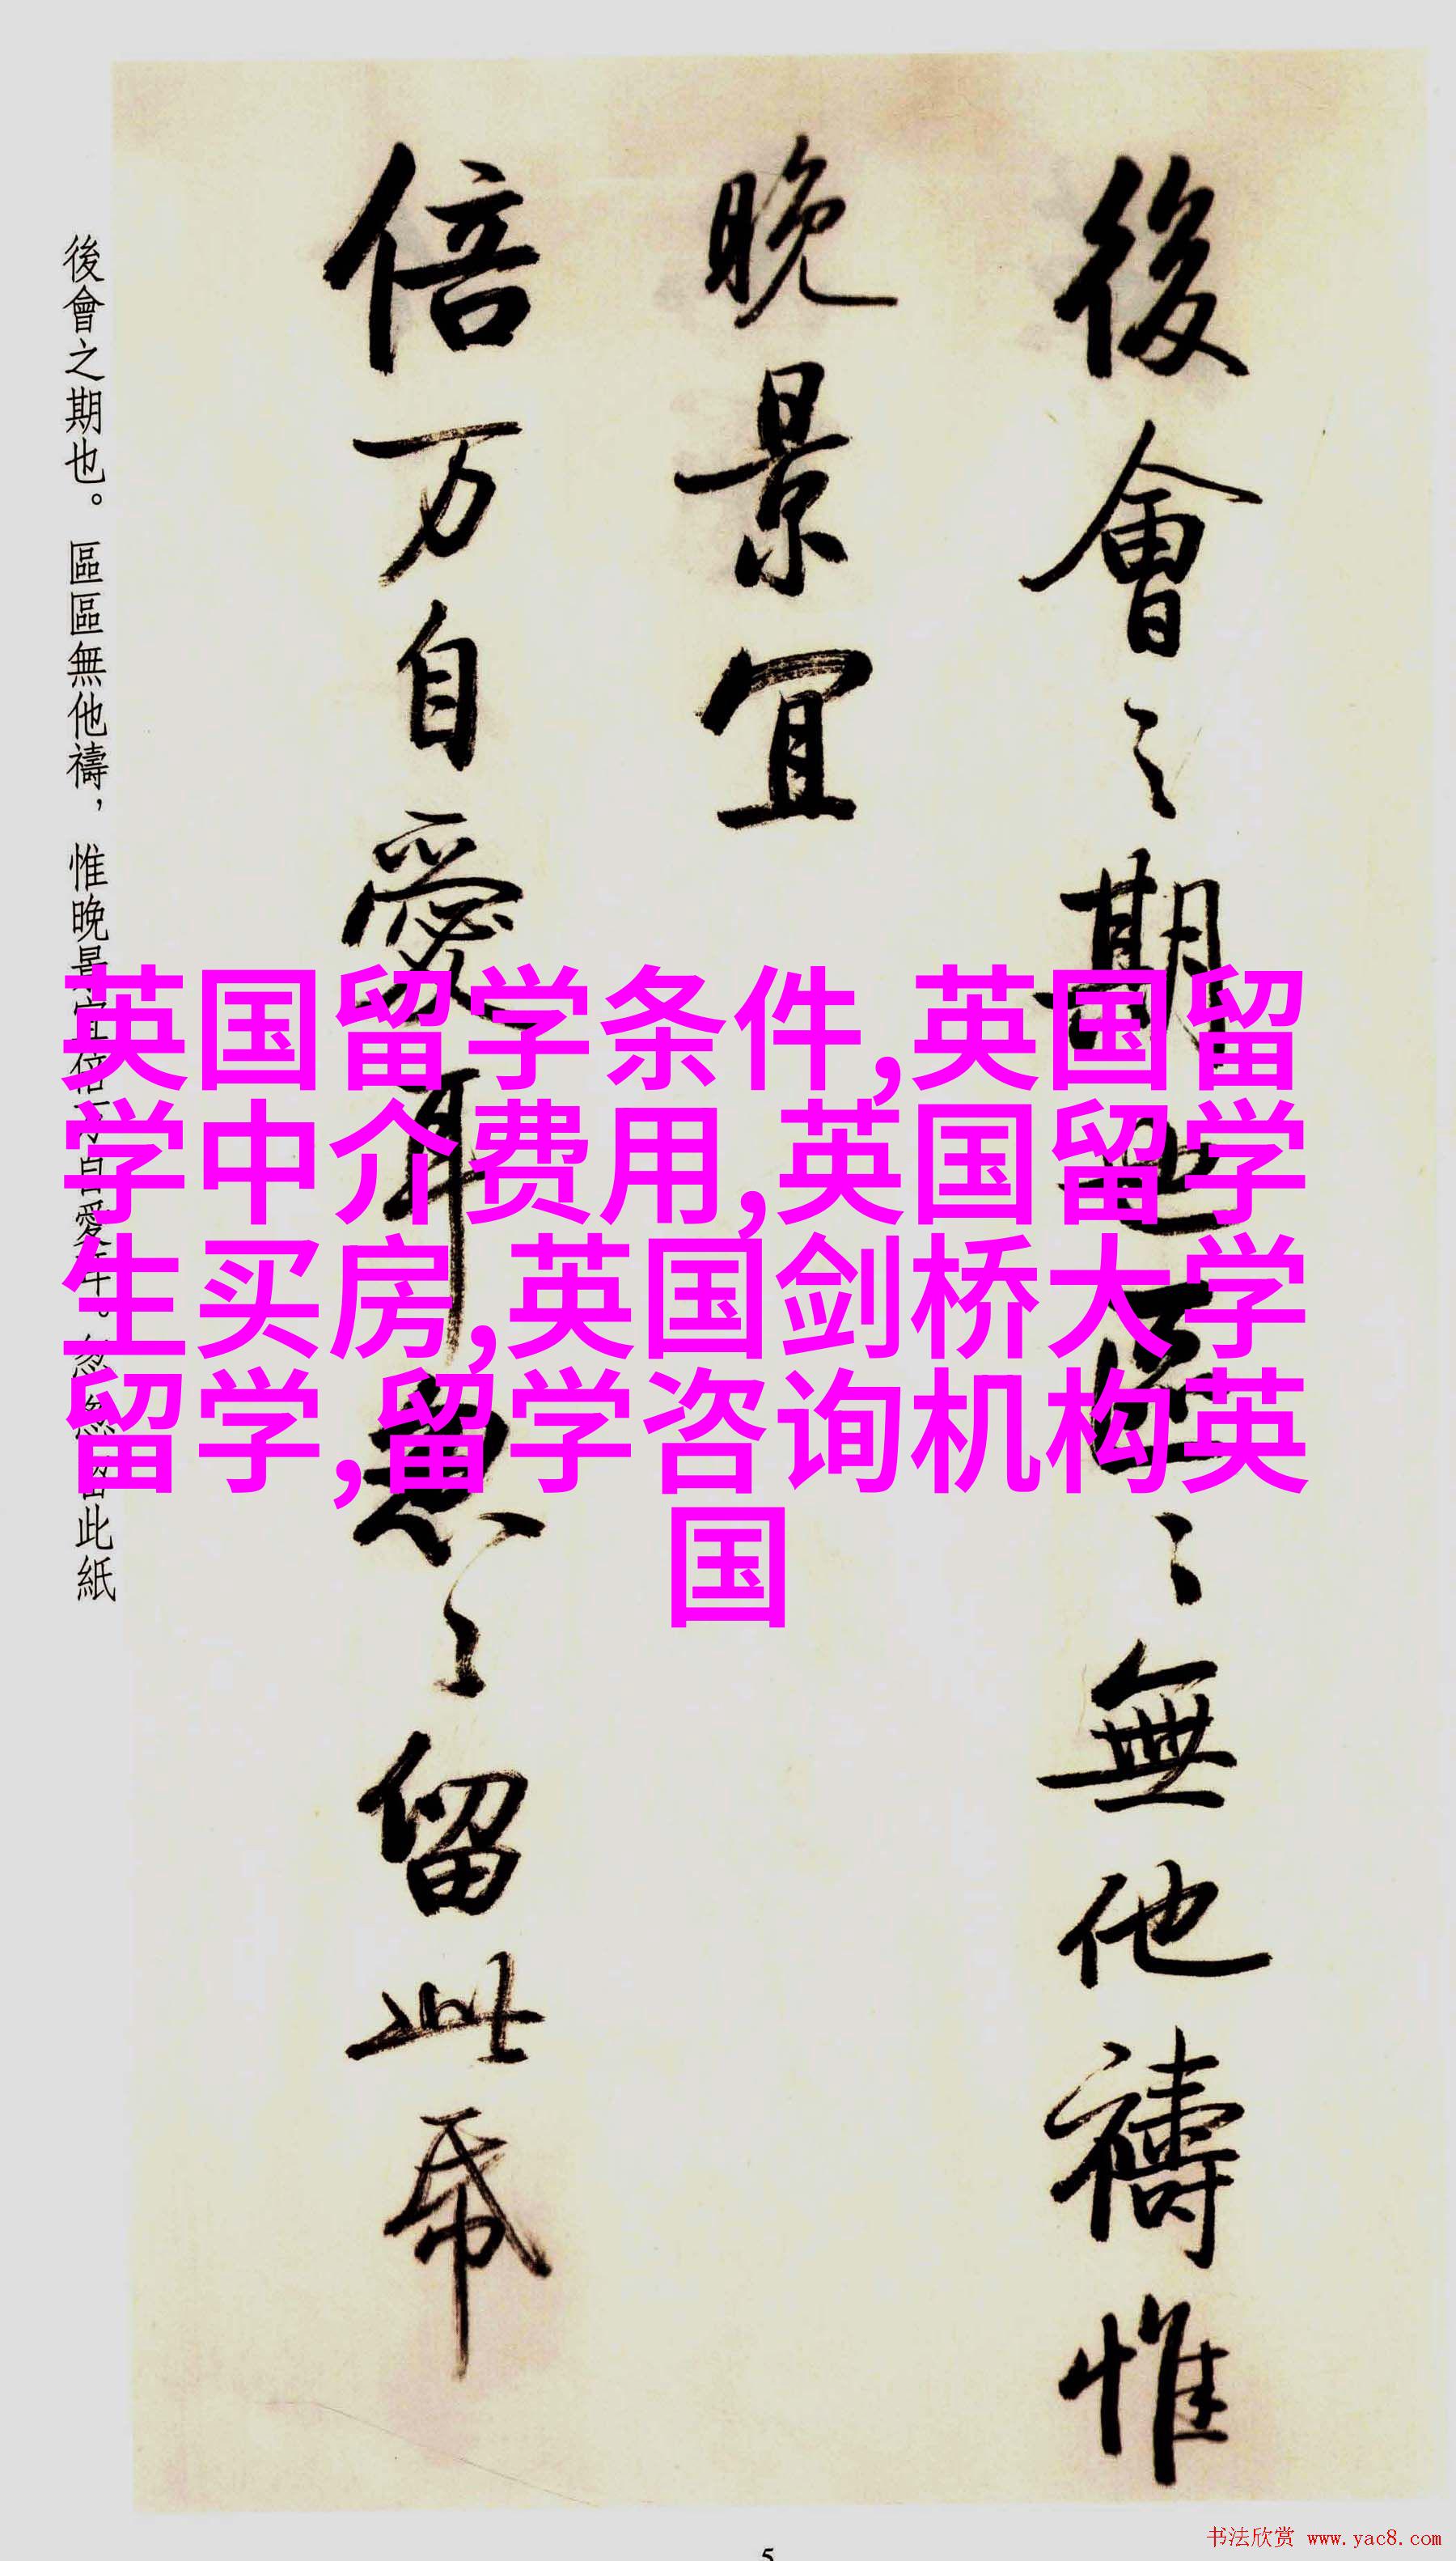 後會之期也區〻無他禱惟
晚景宜
倍万自愛耳怱〻留此紙
後會之期也。區區無他禱，惟晚景宜倍万自愛耳。怱怱留此紙
英国留学条件,英国留
学中介费用,英国留学
生买房,英国剑桥大学
留学,留学咨询机构英
国
书法欣赏 www.yac8.com
5